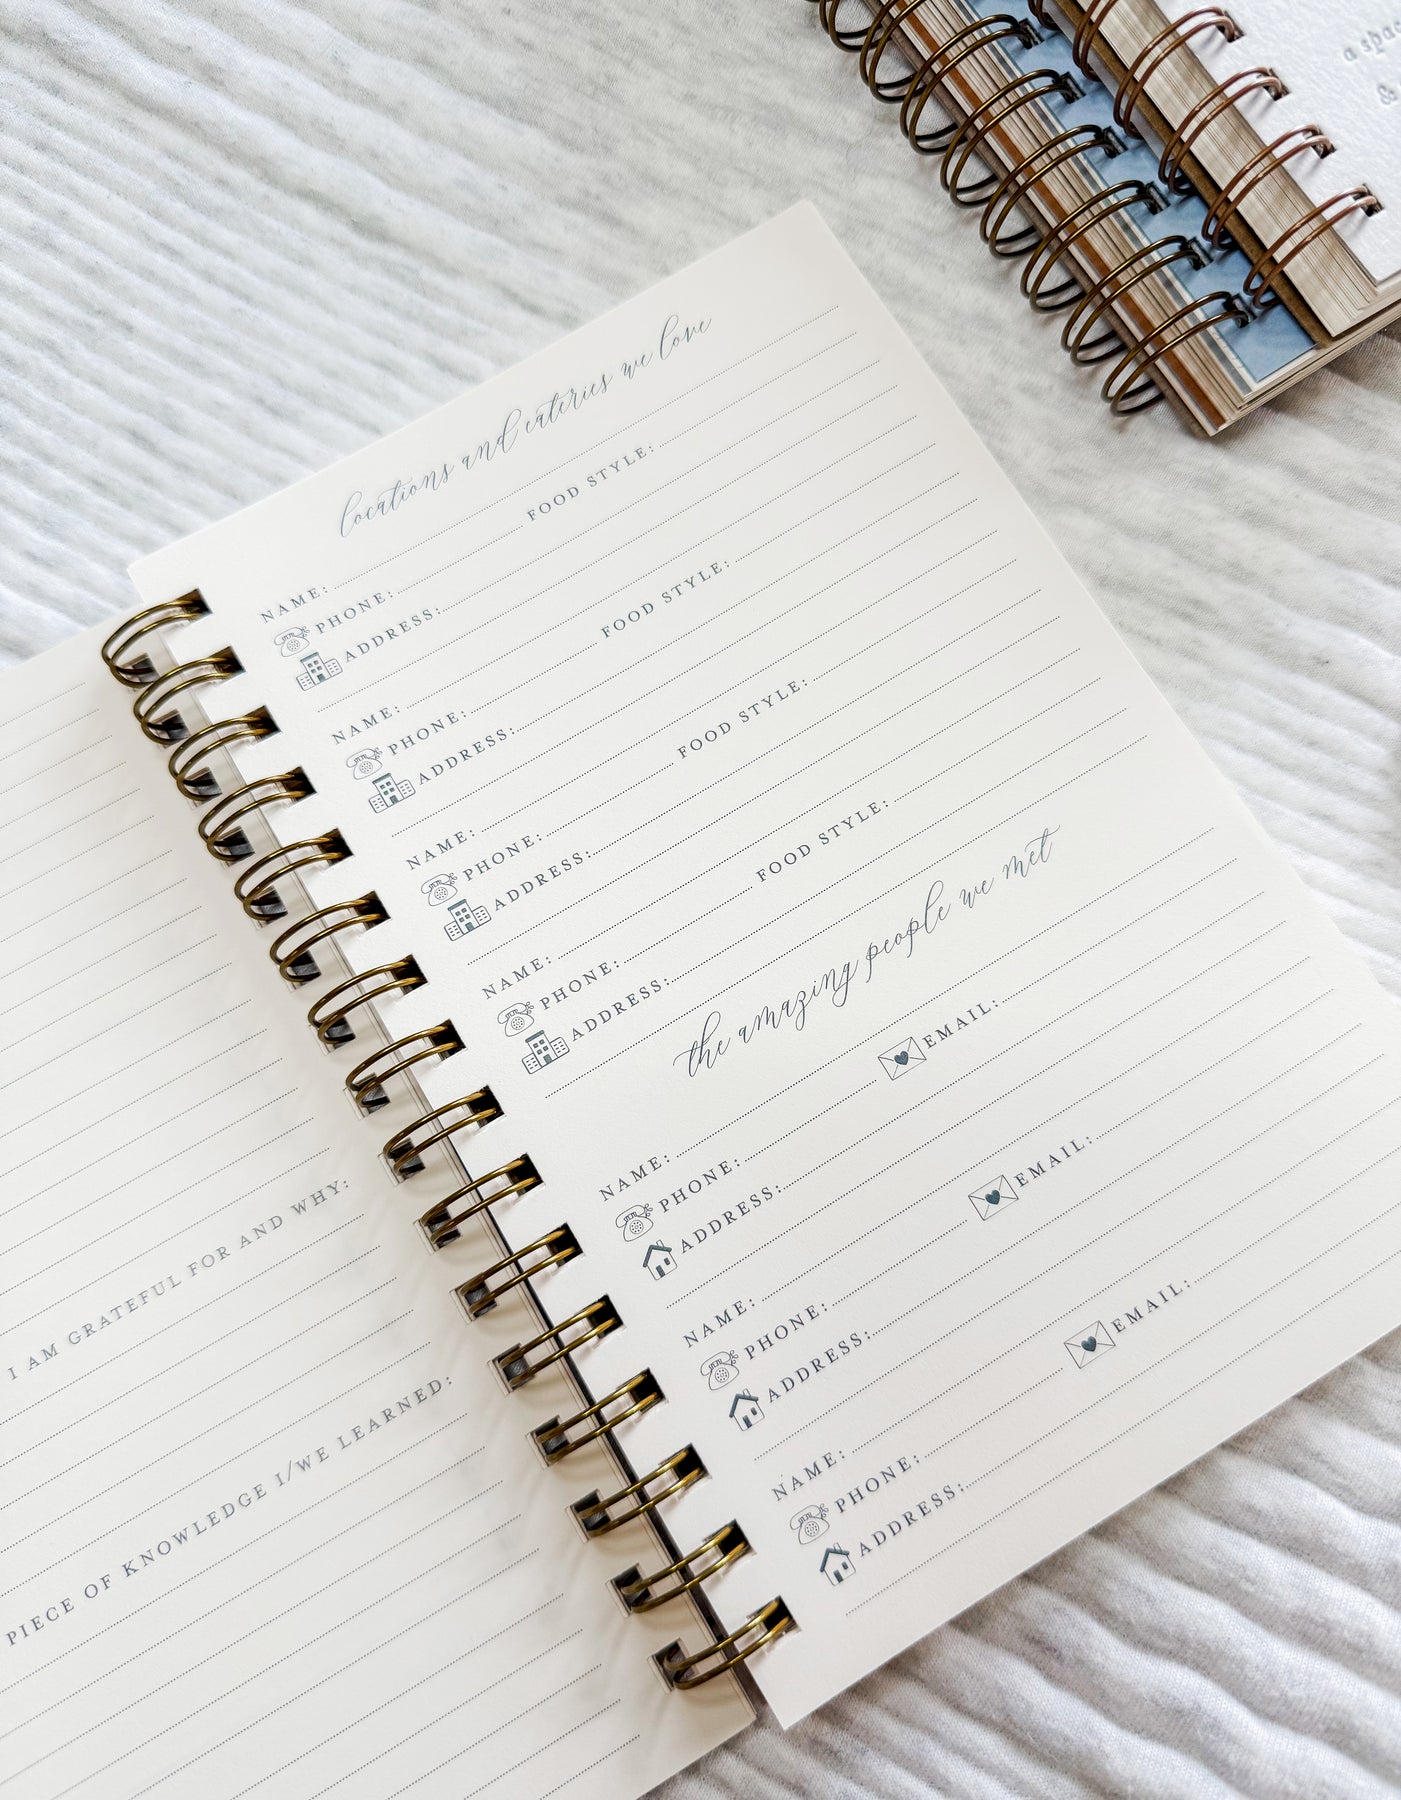 I AM GRATEFUL FOR AND WHY:
PIECE OF KNOWLEDGE I/WE LEARNED:
locations and eateries we love
NAME:
PHONE: FOOD STYLE:
ADDRESS:
NAME:
PHONE: FOOD STYLE:
ADDRESS:
NAME:
PHONE: FOOD STYLE:
ADDRESS:
NAME:
PHONE: FOOD STYLE:
ADDRESS:
the amazing people we met
NAME:
PHONE: EMAIL:
ADDRESS:
NAME:
PHONE: EMAIL:
ADDRESS:
NAME:
PHONE: EMAIL:
ADDRESS:
a
&